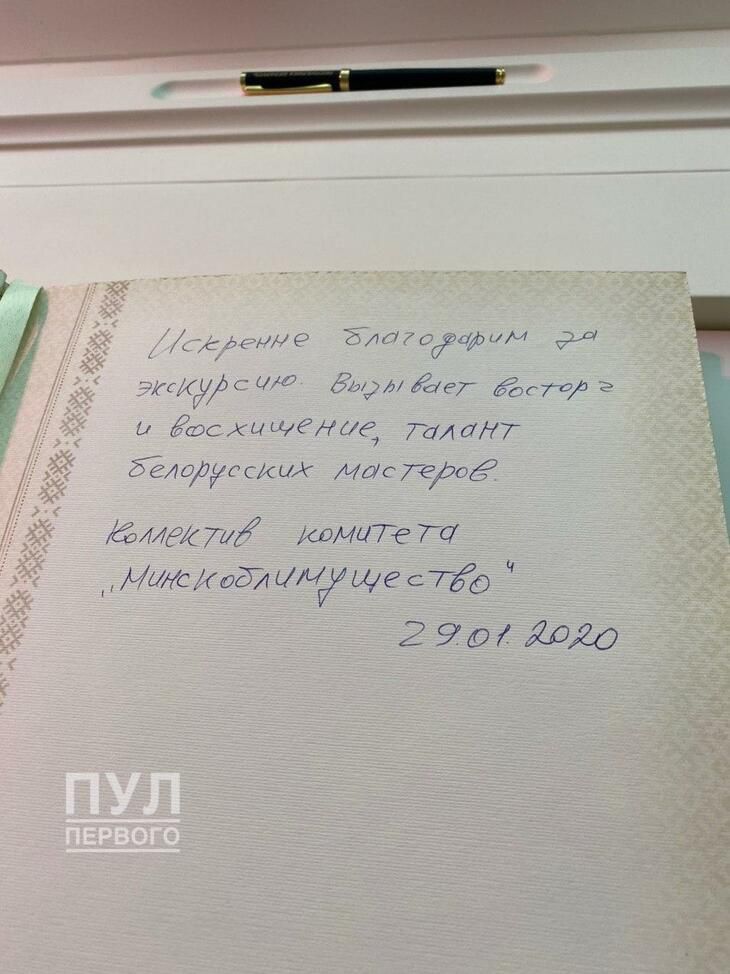 Искренне благодарим за
экскурсию. Вызывает восторг
и восхищение, талант
белорусских мастеров.
Коллектив комитета
„Минскоблимущество"
29.01.2020
ПУЛ
ПЕРВОГО